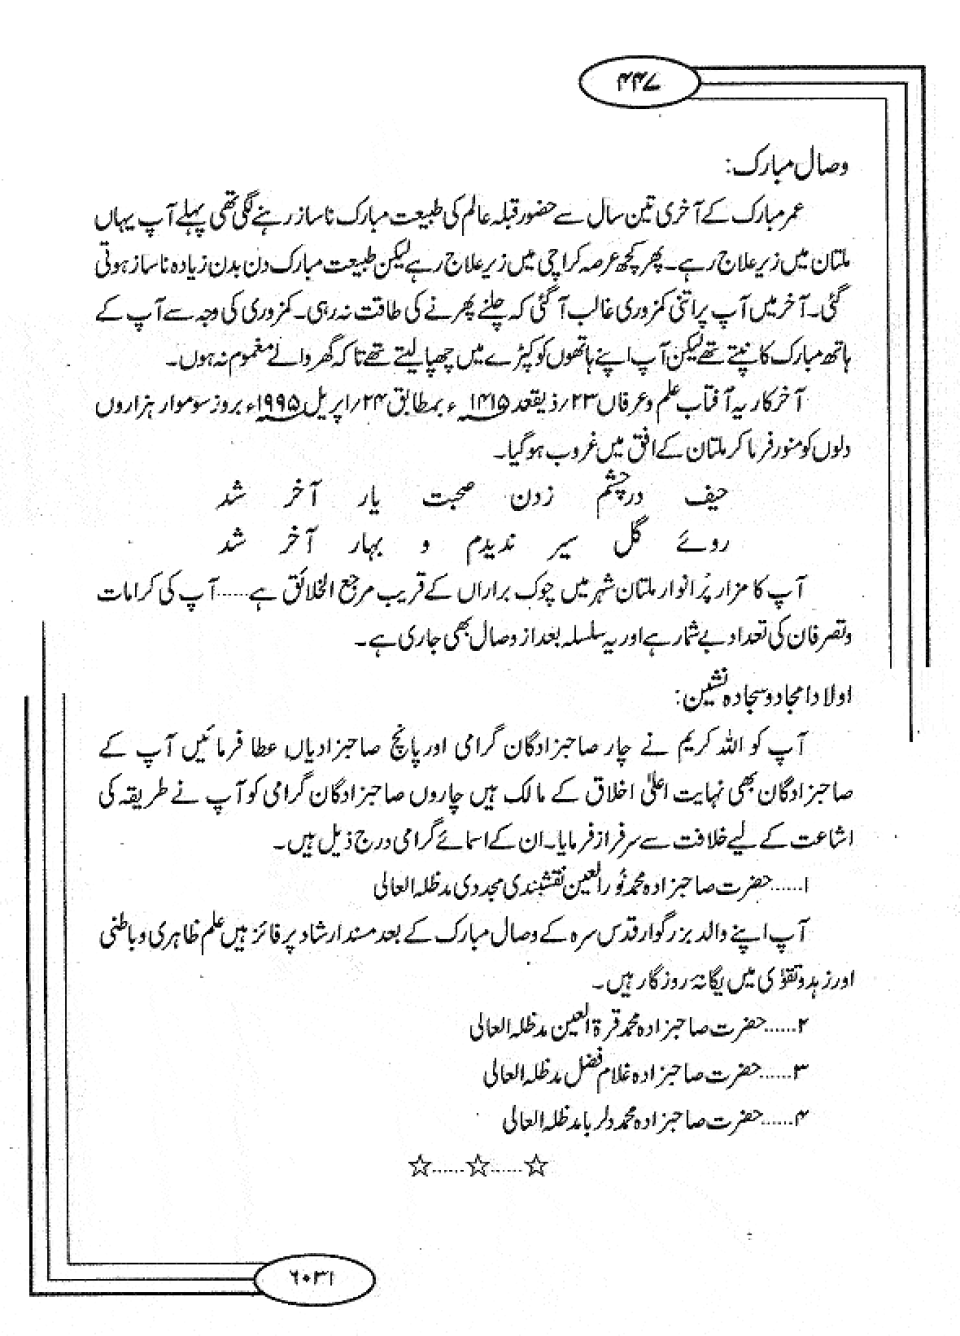 ۴۴۷
وصال مبارک:
عمر مبارک کے آخری تین سال سے حضور قبلہ عالم کی طبیعت مبارک ناساز رہنے لگی تھی پہلے آپ یہاں
ملتان میں زیر علاج رہے۔ پھر کچھ عرصہ کراچی میں زیر علاج رہے لیکن طبیعت مبارک دن بدن زیادہ ناساز ہوتی
گئی۔ آخر میں آپ پر اتنی کمزوری غالب آ گئی کہ چلنے پھرنے کی طاقت نہ رہی۔ کمزوری کی وجہ سے آپ کے
ہاتھ مبارک کانپتے تھے لیکن آپ اپنے ہاتھوں کو کپڑے میں چھپا لیتے تھے تاکہ گھر والے مغموم نہ ہوں۔
آخر کار یہ آفتاب علم و عرفاں ۲۳/ذیقعد ۱۴۱۵ ء بمطابق ۲۴/اپریل ۱۹۹۵ء بروز سوموار ہزاروں
دلوں کو منور فرما کر ملتان کے افق میں غروب ہو گیا۔
حیف در چشم زدن صحبت یار آخر شد
روئے گل سیر ندیدم و بہار آخر شد
آپ کا مزار پُر انوار ملتان شہر میں چوک براراں کے قریب مرجع الخلائق ہے......آپ کی کرامات
و تصرفان کی تعداد بے شمار ہے اور یہ سلسلہ بعد از وصال بھی جاری ہے۔
اولاد امجاد و سجادہ نشین:
آپ کو اللہ کریم نے چار صاحبزادگان گرامی اور پانچ صاحبزادیاں عطا فرمائیں آپ کے
صاحبزادگان بھی نہایت اعلیٰ اخلاق کے مالک ہیں چاروں صاحبزادگان گرامی کو آپ نے طریقہ کی
اشاعت کے لیے خلافت سے سرفراز فرمایا۔ ان کے اسمائے گرامی درج ذیل ہیں۔
۱......حضرت صاحبزادہ محمد نُور العین نقشبندی مجددی مدظلہ العالی
آپ اپنے والد بزرگوار قدس سرہ کے وصال مبارک کے بعد مسند ارشاد پر فائز ہیں علم ظاہری و باطنی
اور زہد و تقوٰی میں یگانہ روزگار ہیں۔
۲......حضرت صاحبزادہ محمد قرۃ العین مدظلہ العالی
۳......حضرت صاحبزادہ غلام فضل مدظلہ العالی
۴......حضرت صاحبزادہ محمد دلربا مدظلہ العالی
☆......☆......☆
۶۰۳۱